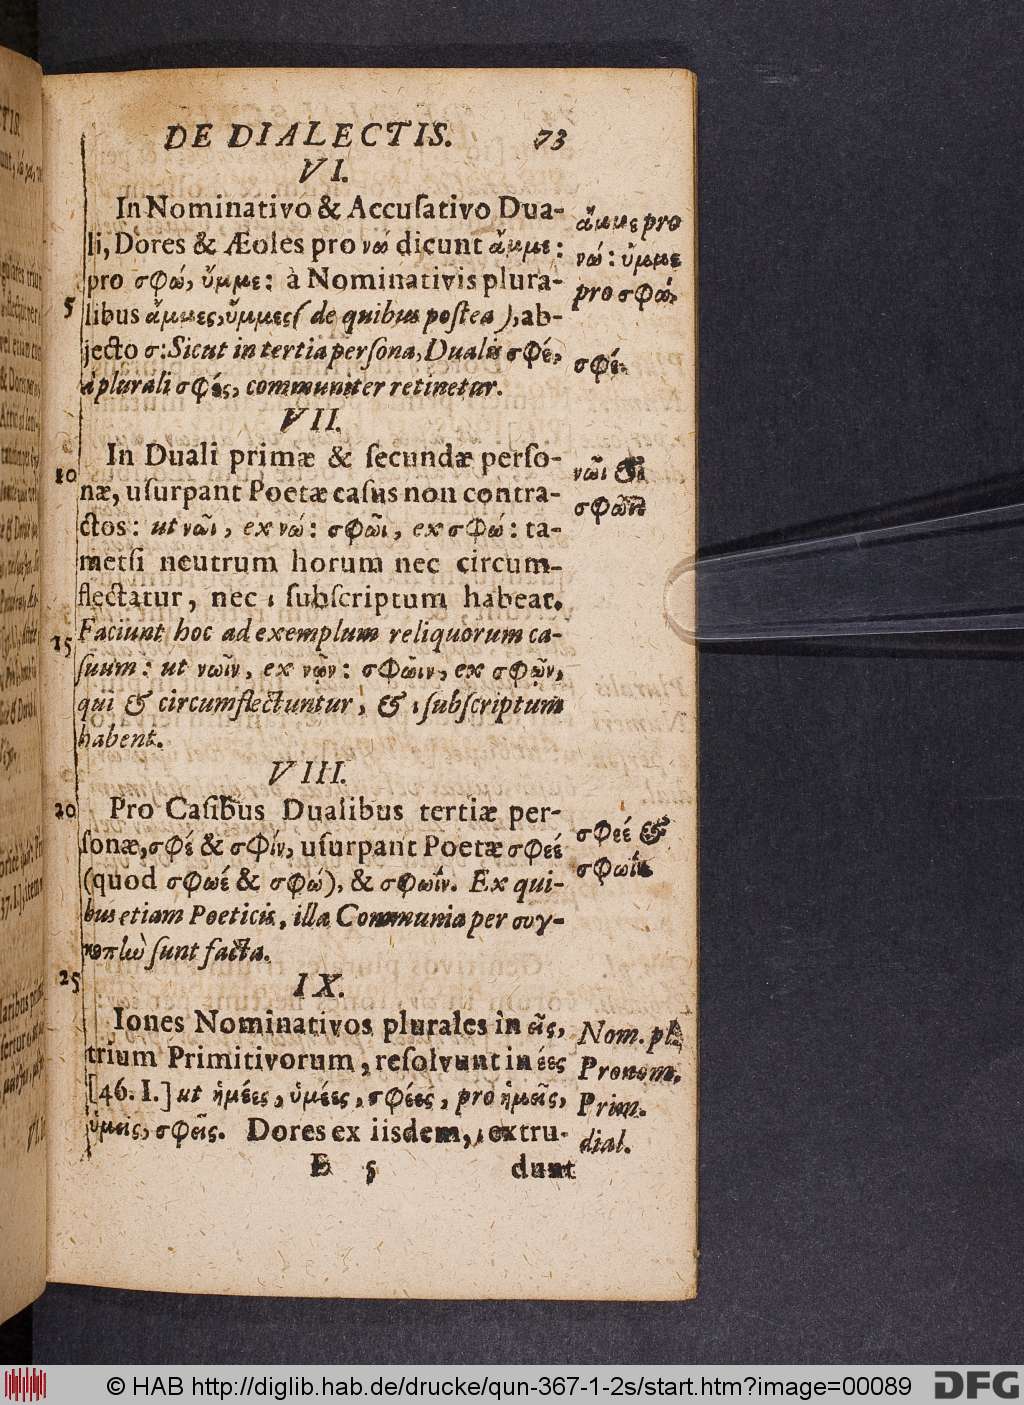 DE DIALECTIS. 73
VI.
In Nominativo & Accuſativo Dua-
li, Dores & Æoles pro νώ dicunt ἄμμε:
pro σφώ, ὔμμε: à Nominativis plura-
5 libus ἄμμες, ὔμμες (de quibus poſtea), ab-
jecto σ: Sicut in tertia perſona, Dualis σφέ,
à plurali σφές, communiter retinetur.
ἄμμε pro
νώ: ὔμμε
pro σφώ,
σφέ.
VII.
In Duali primæ & ſecundæ perſo-
10 næ, uſurpant Poetæ caſus non contra-
ctos: ut νῶι, ex νώ: σφῶι, ex σφώ: ta-
metſi neutrum horum nec circum-
flectatur, nec ι ſubſcriptum habeat.
Faciunt hoc ad exemplum reliquorum ca-
15 ſuum: ut νωῖν, ex νῷν: σφῶιν, ex σφῷν,
qui & circumflectuntur, & ι ſubſcriptum
habent.
νῶι &
σφῶι
VIII.
20 Pro Caſibus Dualibus tertiæ per-
ſonæ, σφέ & σφίν, uſurpant Poetæ σφεέ
(quod σφωέ & σφώ), & σφωΐν. Ex qui-
bus etiam Poeticis, illa Communia per συγ-
κοπὴν ſunt facta.
σφεέ &
σφωΐν
25 IX.
Iones Nominativos plurales in εῖς,
trium Primitivorum, reſolvunt in έες
[46. I.] ut ἡμέες, ὑμέες, σφέες, pro ἡμεῖς,
ὑμεῖς, σφεῖς. Dores ex iisdem, ι extru-
Nom. pl.
Pronom.
Prim.
dial.
E 5 dunt
© HAB http://diglib.hab.de/drucke/qun-367-1-2s/start.htm?image=00089 DFG